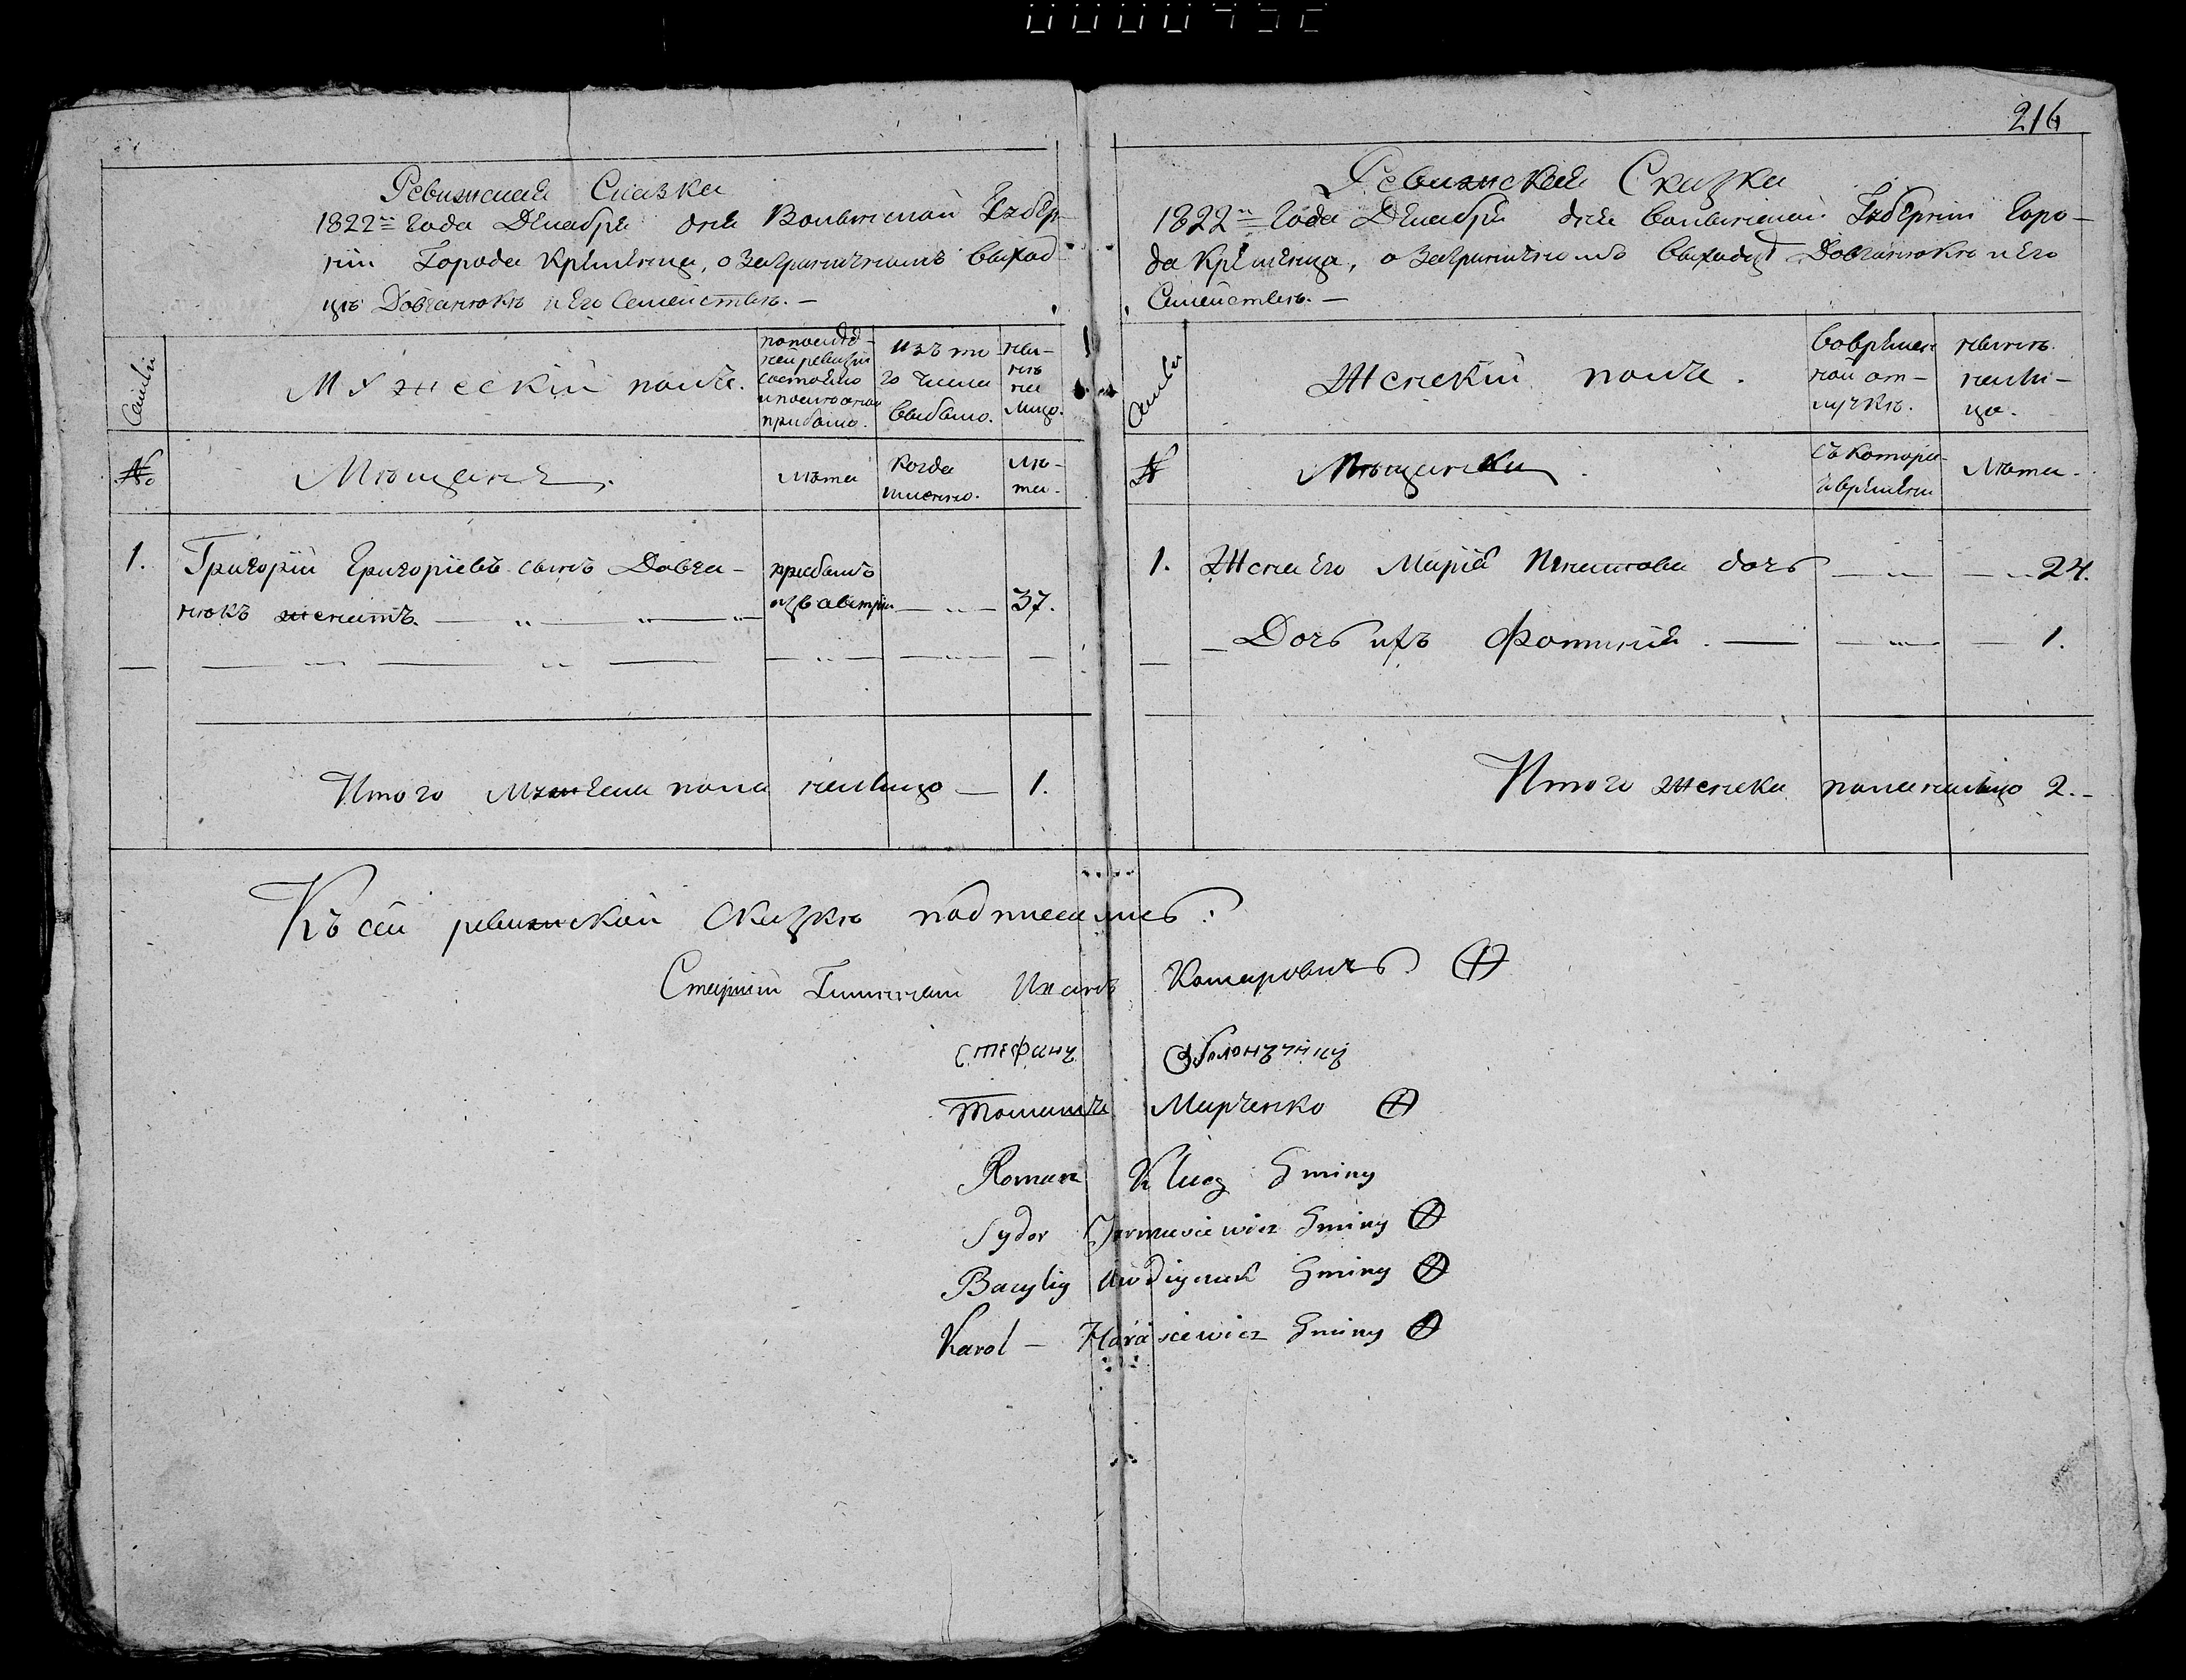 216
Ревижская Сказка
1822го Года Декабря дня Волынской Губер-
нии Города Кременца, о Заграничномъ выход-
цѣ Довганюкѣ и Его Семействѣ. —
Семьи
Мужескій полъ.
попослѣд-
ней ревизіи
состояло
и послѣ оной
прибыло.
Изъ то-
го числа
выбыло.
Нын-
нѣ
на
лицо.
№
Мѣщане.
Лѣта
Когда
имянно.
Лѣ-
та.
1. Григорій Григоріевъ сынъ Довга-
нюкъ женатъ.
прибылъ
изъ австріи
37.
Итого Мужеска пола налицо — 1.
Ревижская Сказка
1822го Года Декабря дня Волынской Губерніи Горо-
да Кременца, о Заграничномъ выходцѣ Довганюкѣ и Его
Семействѣ. —
Семьи
Женскій полъ.
Вовремен-
ной от-
лучкѣ.
Нынѣ
нали-
цо.
№
Мѣщанки
Съ котора-
го времени
Лѣта.
1. Жена Его Марія Игнатова дочь 24.
Дочь ихъ Фотинія. — 1.
Итого женска пола налицо 2.-
Къ сей ревижской Сказкѣ подписались:
Старшій Гминный Иванъ Комаровичъ.
Стефанъ
Томашъ Марченко
Roman Klucz Gminy
Sydor Jarmusiewicz Gminy
Bacyliy Gminy
Karol — Harasiewicz Gminy